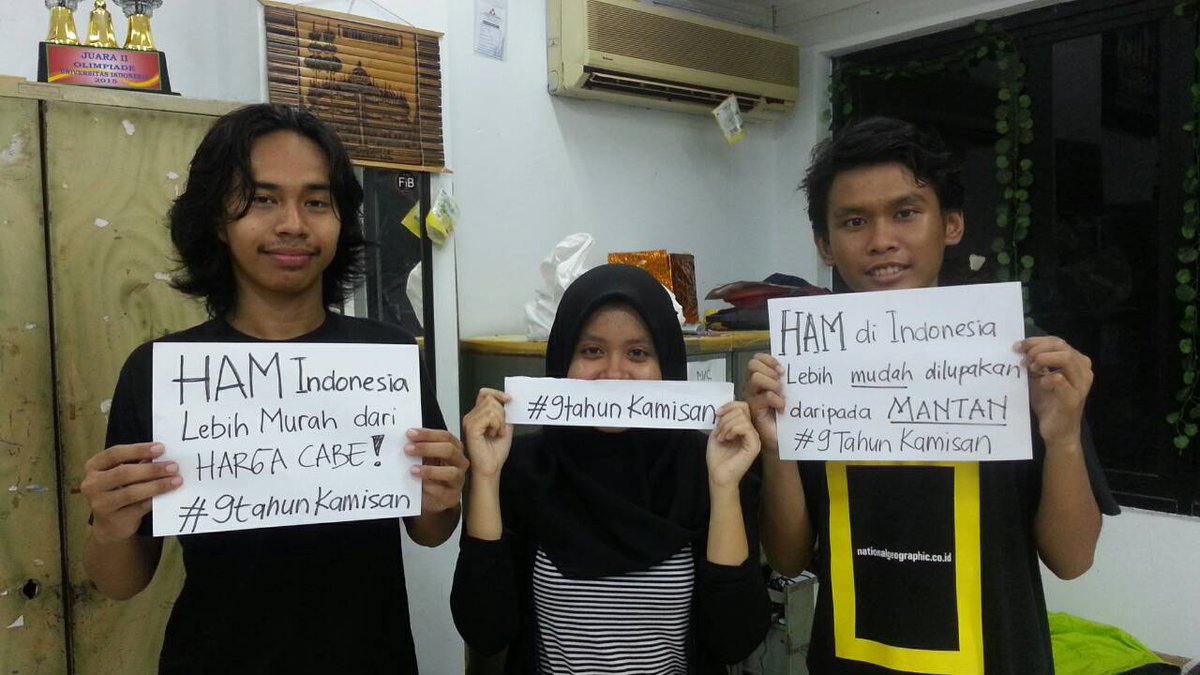 JUARA II
OLIMPIADE
UNIVERSITAS INDONESIA
2015
FIB
HAM Indonesia
Lebih Murah dari
HARGA CABE!
#9tahun Kamisan
#9tahun Kamisan
HAM di Indonesia
Lebih mudah dilupakan
daripada MANTAN
#9Tahun Kamisan
nationalgeographic.co.id